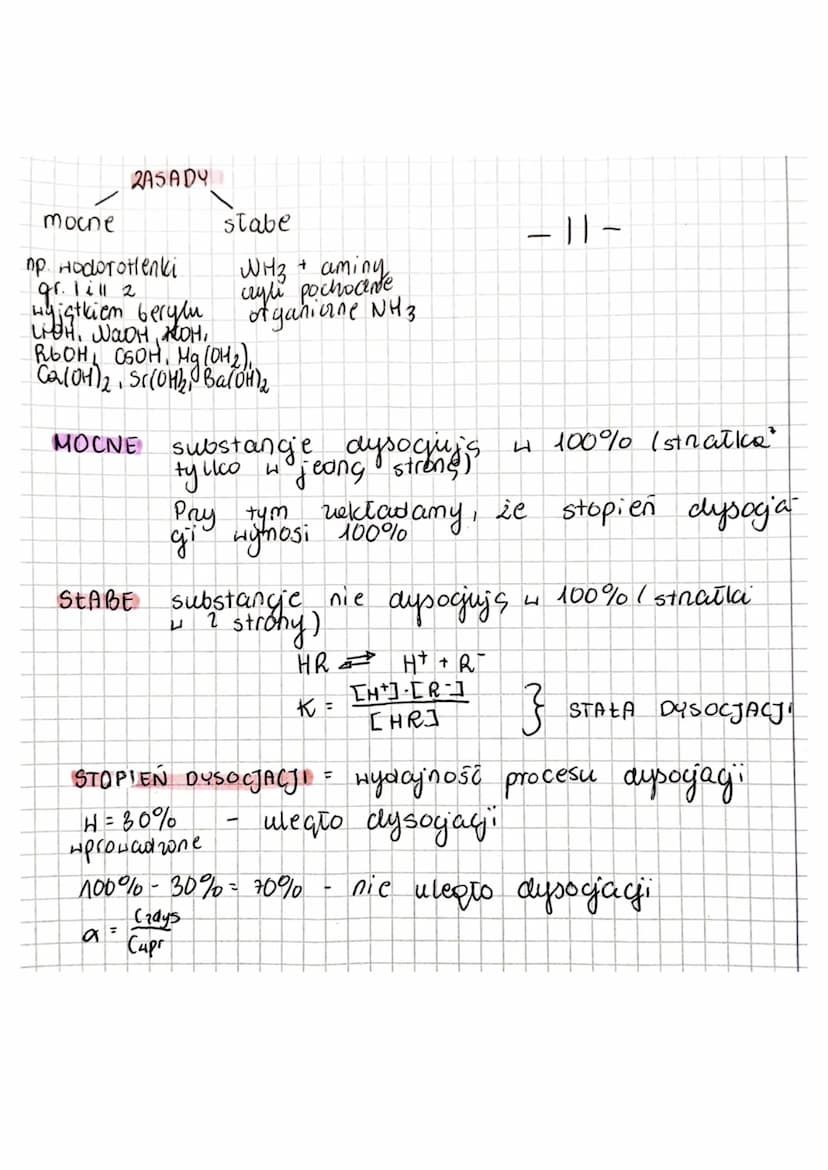 ZASADY
mocne słabe
- 11 -
np. wodorotlenki
gr. 1 i 11 z
wyjątkiem berylu
LiOH, NaOH, KOH,
RbOH, CsOH, Mg(OH2),
Ca(OH)2, Sr(OH)2, Ba(OH)2
NH3 + aminy
czyli pochodne
organiczne NH3
MOCNE substancje dysocjują w 100% (strzałka
tylko w jedną stronę)
Przy tym zakładamy, że stopień dysocja-
cji wynosi 100%
SŁABE substancje nie dysocjują w 100% (strzałki
w 2 strony)
HR ⇌ H+ + R-
K = [H+]·[R-] / [HR] } STAŁA DYSOCJACJI
STOPIEŃ DYSOCJACJI = wydajność procesu dysocjacji
W = 30% - uległo dysocjacji
wprowadzone
100% - 30% = 70% - nie uległo dysocjacji
α = Czdys / Cwpr